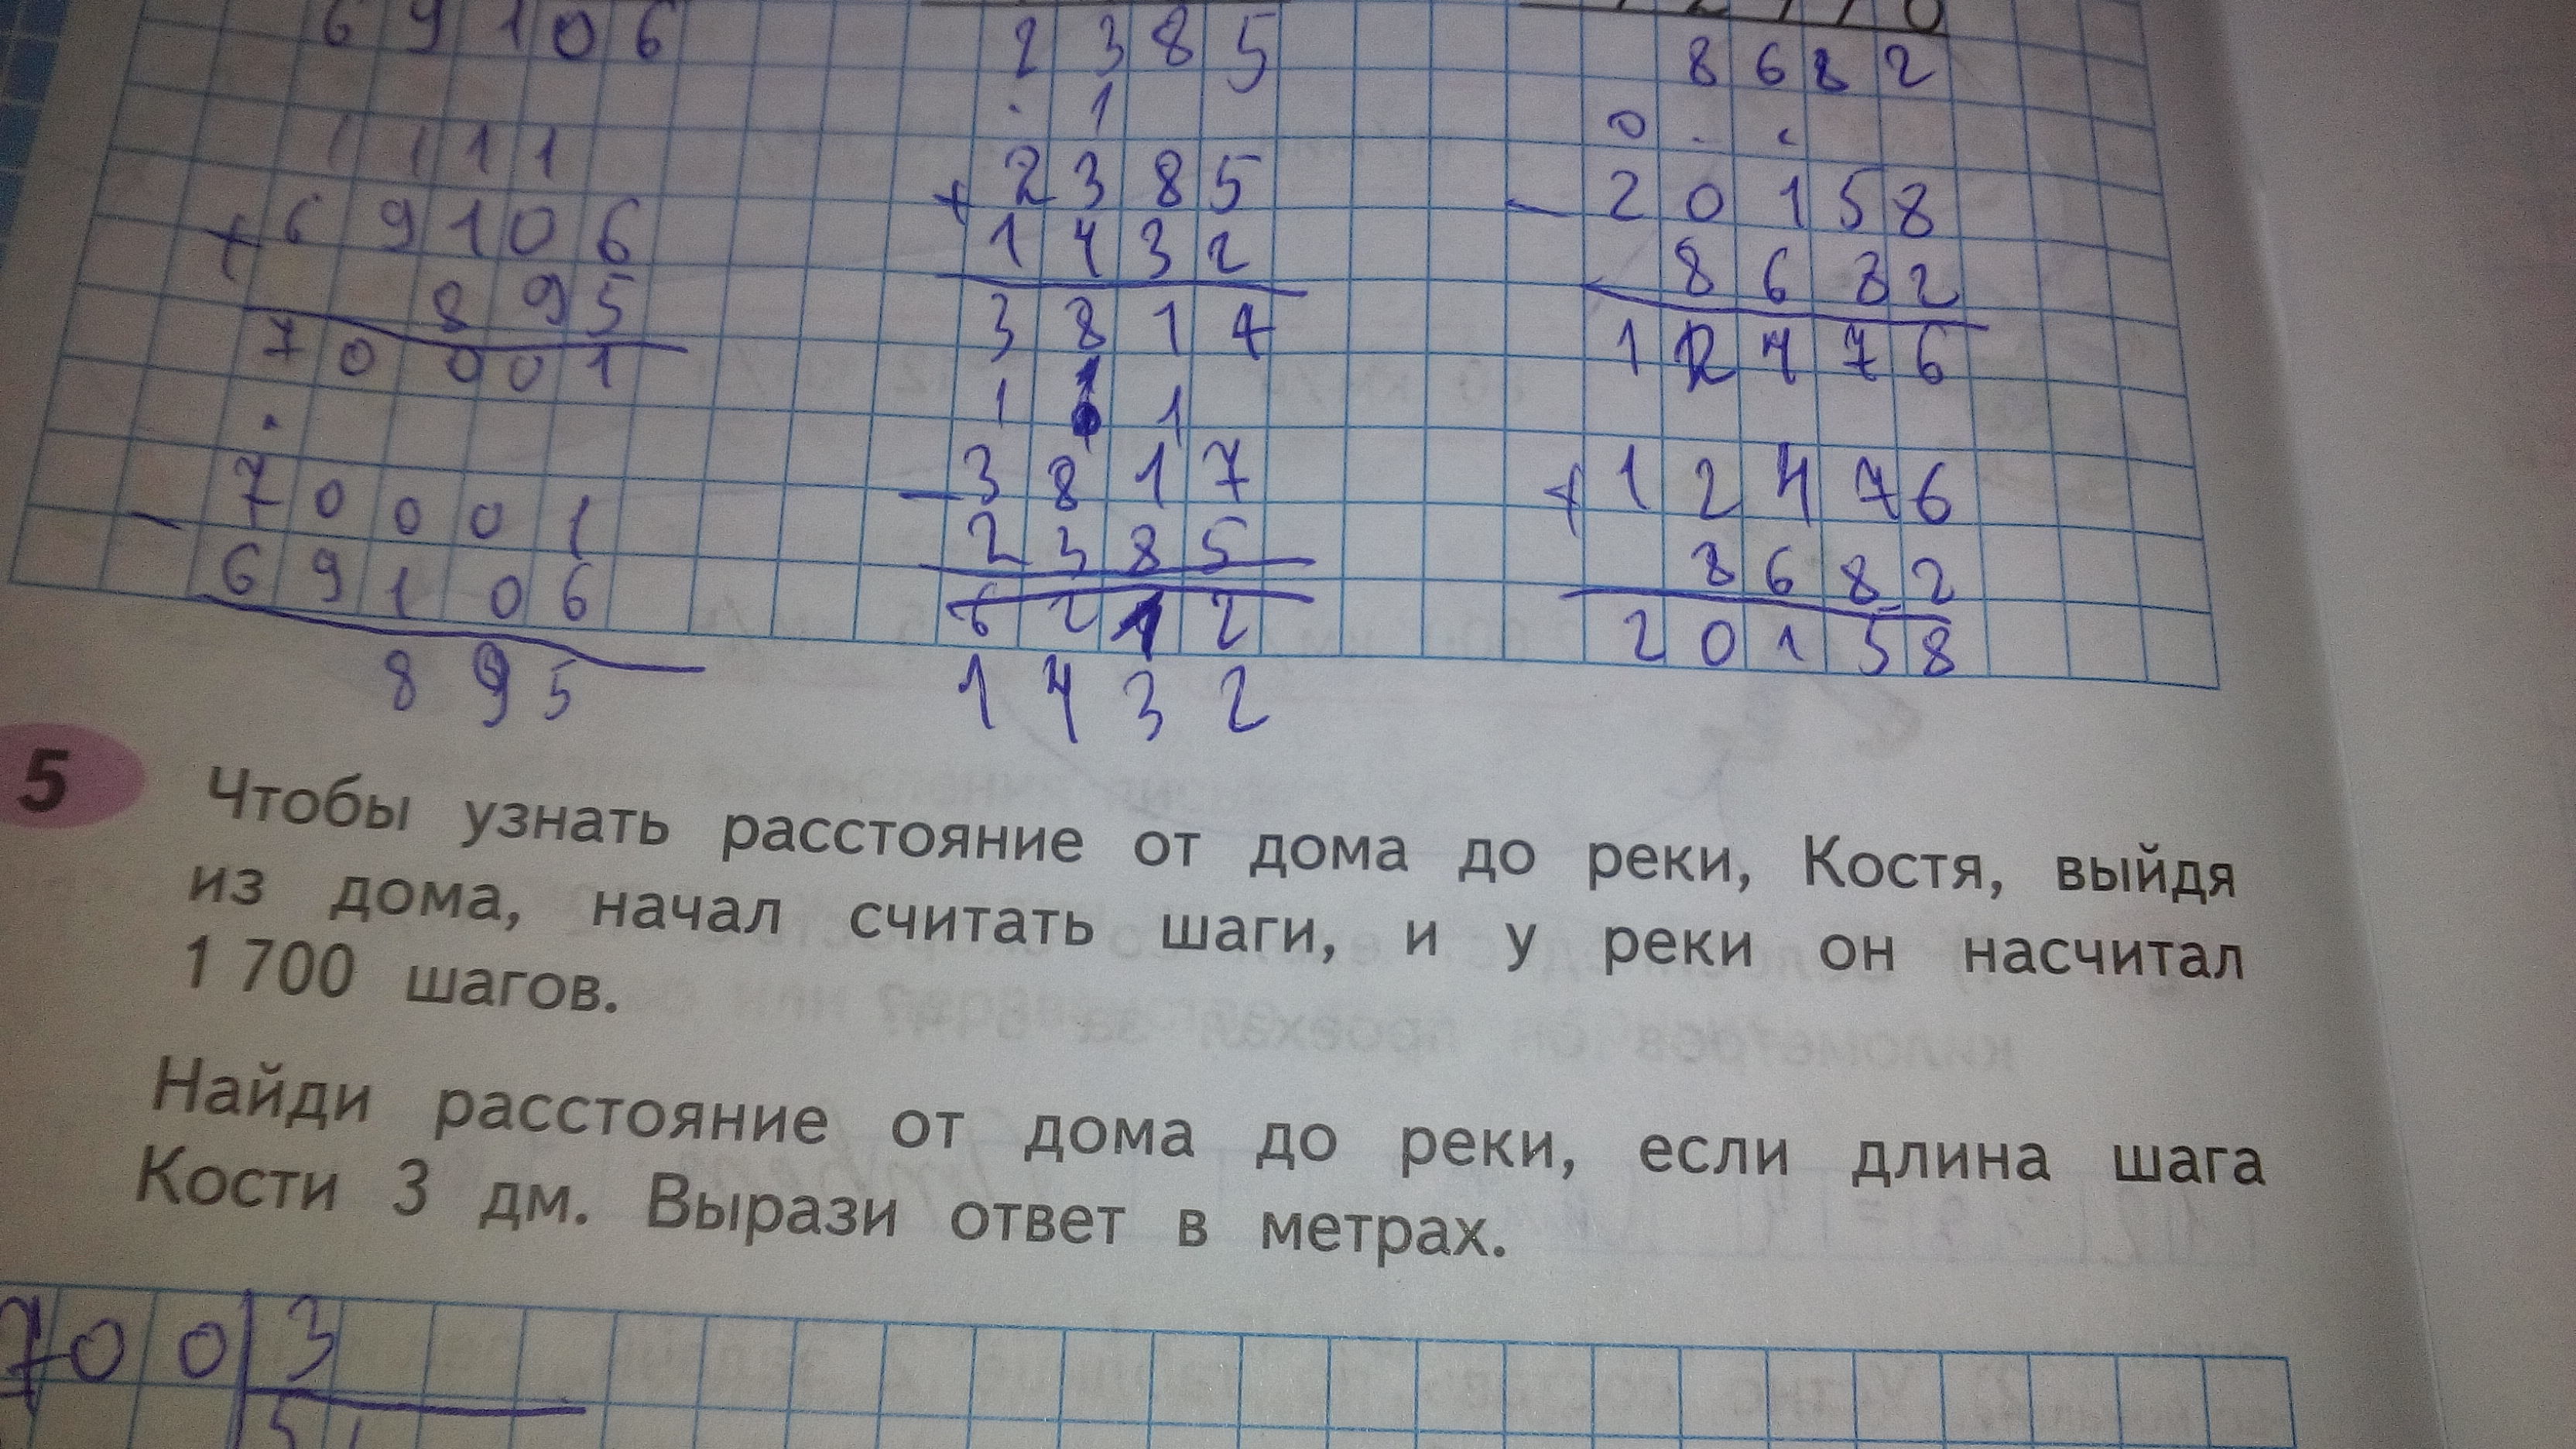 69106
2385
8682
1 1 1 1
+ 69106
895
70 001
70001
-
69106
895
. 1
+ 2385
1432
3817
1 1
- 3817
2385
1432
0 . .
- 20158
8682
12476
+ 12476
8682
20158
5 Чтобы узнать расстояние от дома до реки, Костя, выйдя
из дома, начал считать шаги, и у реки он насчитал
1 700 шагов.
Найди расстояние от дома до реки, если длина шага
Кости 3 дм. Вырази ответ в метрах.
700 3